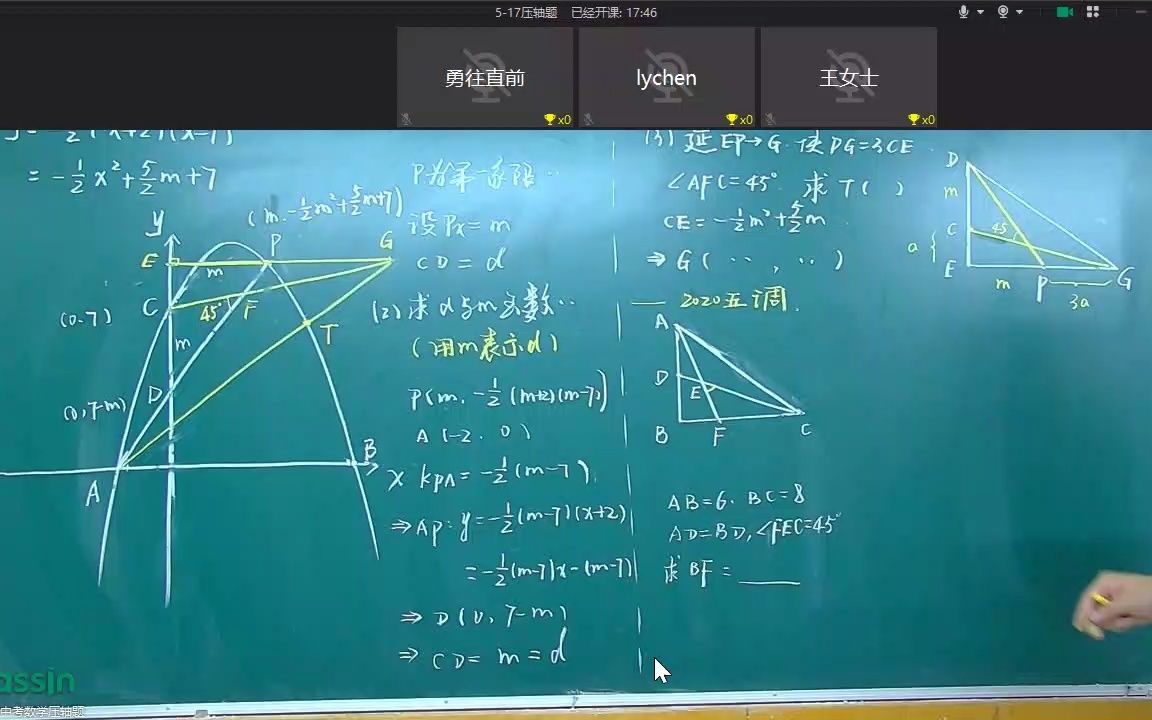 5-17压轴题 已经开课: 17:46
勇往直前
x0
lychen
x0
王女士
x0
= -1/2 x² + 5/2 m + 7
y
(m, -1/2 m² + 5/2 m + 7)
E
m
P
G
C
(0.7)
45°
F
m
T
D
(0, 7-m)
A
B
设 Px = m
CD = d
(2) 求 d 与 m
(用m表示d)
P(m, -1/2 (m+2)(m-7))
A (-2, 0)
kPA = -1/2 (m-7)
⇒ AP: y = -1/2 (m-7)(x+2)
= -1/2 (m-7)x - (m-7)
⇒ D(0, 7-m)
⇒ CD = m = d
(3) 延EP→G, 使PG=3CE
∠AFC=45° 求T( )
CE = -1/2 m² + 5/2 m
⇒ G( ‥ , ‥ )
— 2020五调
A
D
E
B
F
C
AB=6. BC=8
AD=BD, ∠FEC=45°
求BF = ____
D
m
C
45
a
E
m
P
3a
G
assin
中考数学压轴题